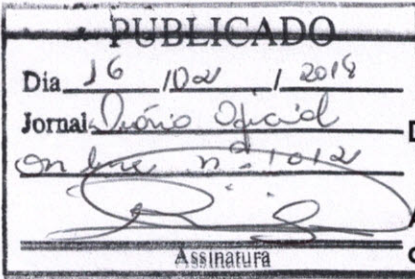 PUBLICADO
Dia 16 /02 / 2018
Jornal Diário Oficial
On line nº 1012
Assinatura